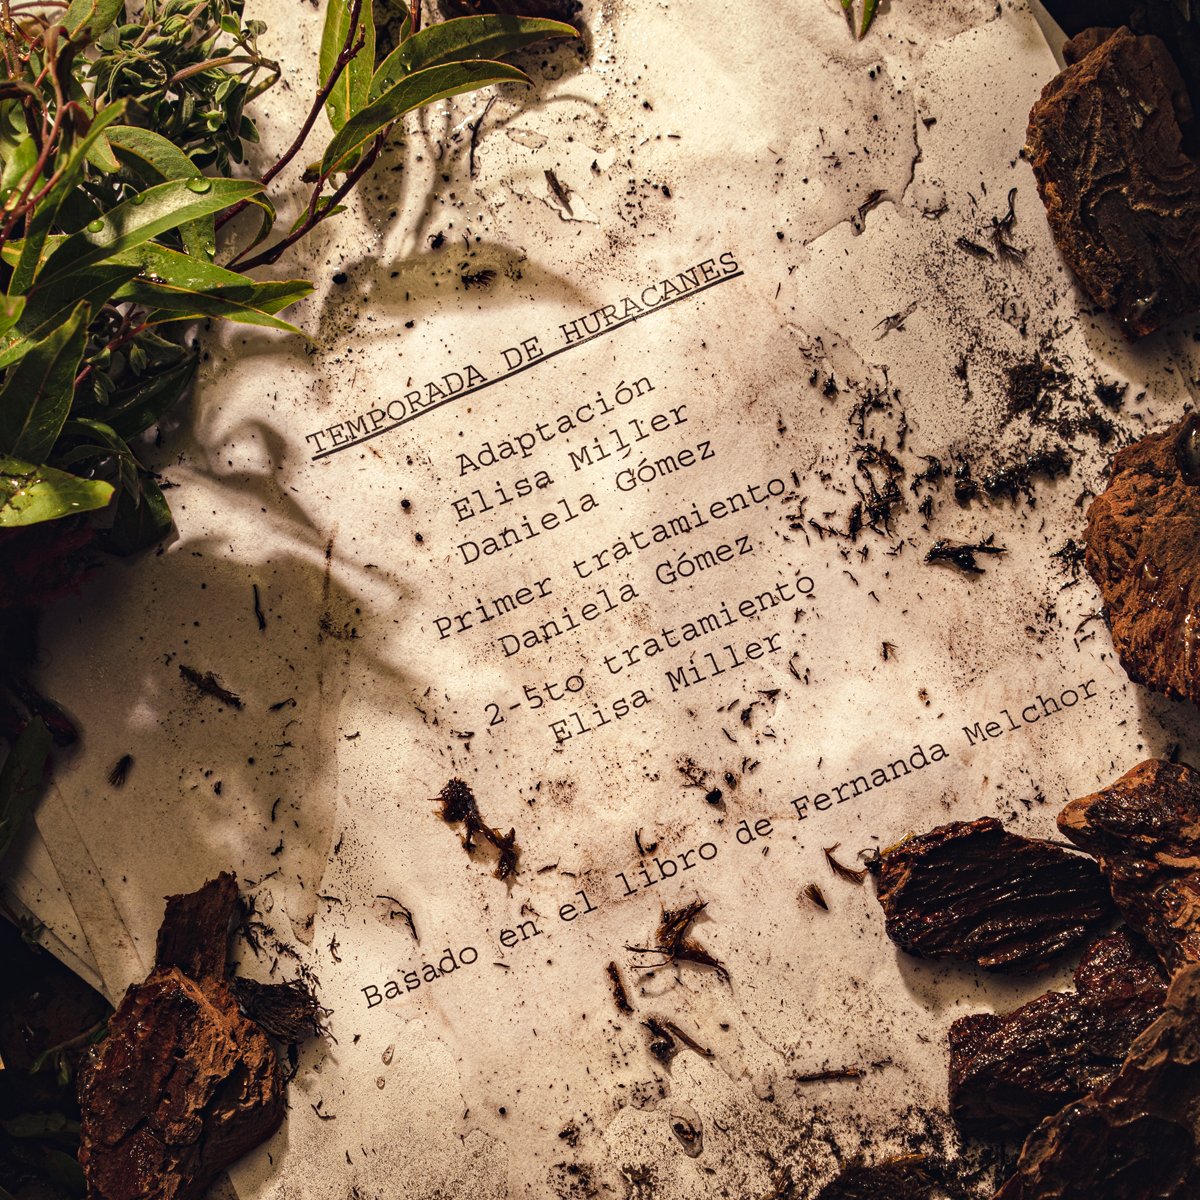 TEMPORADA DE HURACANES
Adaptación
Elisa Miller
Daniela Gómez
Primer tratamiento
Daniela Gómez
2-5to tratamiento
Elisa Miller
Basado en el libro de Fernanda Melchor